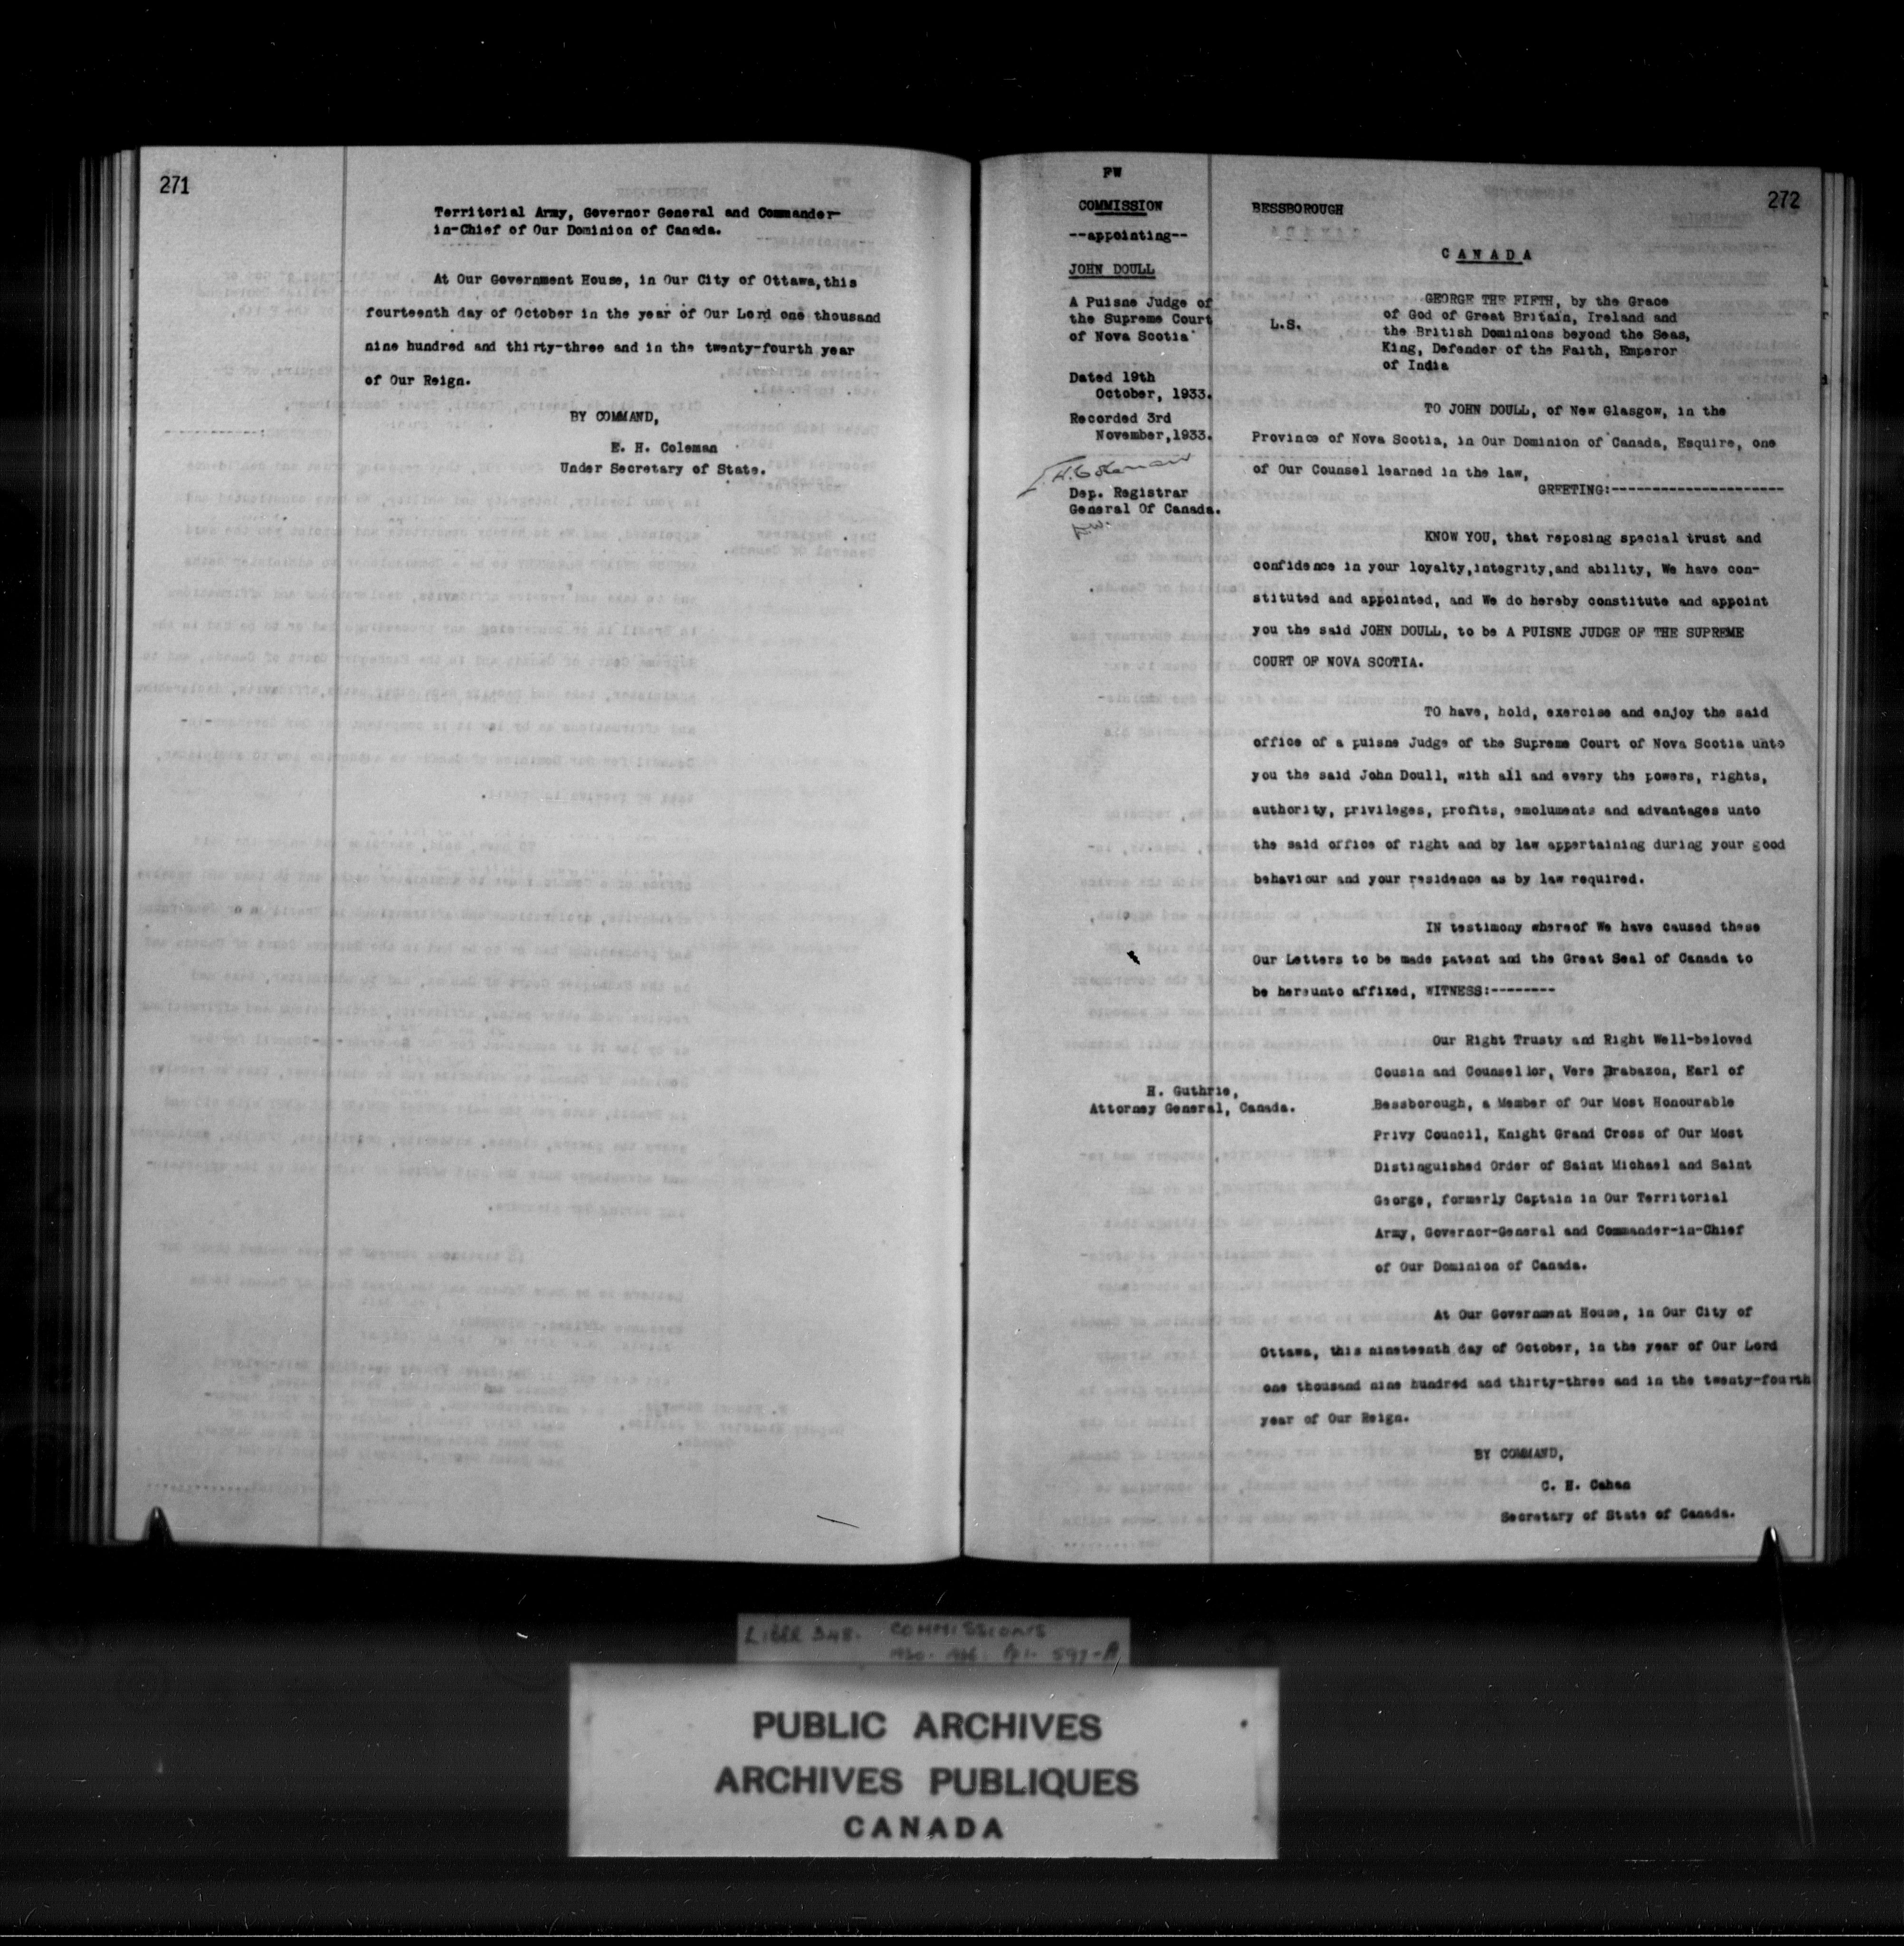 271
Territorial Army, Governor General and Commander-
in-Chief of Our Dominion of Canada.
At Our Government House, in Our City of Ottawa,this
fourteenth day of October in the year of Our Lord one thousand
nine hundred and thirty-three and in the twenty-fourth year
of Our Reign.
BY COMMAND,
E. H. Coleman
Under Secretary of State.
272
PW
COMMISSION
--appointing--
JOHN DOULL
A Puisne Judge of
the Supreme Court
of Nova Scotia
Dated 19th
October, 1933.
Recorded 3rd
November,1933.
Dep. Registrar
General Of Canada.
H. Guthrie,
Attorney General, Canada.
BESSBOROUGH
CANADA
L.S.
GEORGE THE FIFTH, by the Grace
of God of Great Britain, Ireland and
the British Dominions beyond the Seas,
King, Defender of the Faith, Emperor
of India
TO JOHN DOULL, of New Glasgow, in the
Province of Nova Scotia, in Our Dominion of Canada, Esquire, one
of Our Counsel learned in the law,
GREETING:---------------------
KNOW YOU, that reposing special trust and
confidence in your loyalty,integrity,and ability, We have con-
stituted and appointed, and We do hereby constitute and appoint
you the said JOHN DOULL, to be A PUISNE JUDGE OF THE SUPREME
COURT OF NOVA SCOTIA.
TO have, hold, exercise and enjoy the said
office of a puisne Judge of the Supreme Court of Nova Scotia unto
you the said John Doull, with all and every the powers, rights,
authority, privileges, profits, emoluments and advantages unto
the said office of right and by law appertaining during your good
behaviour and your residence as by law required.
IN testimony whereof We have caused these
Our Letters to be made patent and the Great Seal of Canada to
be hereunto affixed, WITNESS:--------
Our Right Trusty and Right Well-beloved
Cousin and Counsellor, Vere Brabazon, Earl of
Bessborough, a Member of Our Most Honourable
Privy Council, Knight Grand Cross of Our Most
Distinguished Order of Saint Michael and Saint
George, formerly Captain in Our Territorial
Army, Governor-General and Commander-in-Chief
of Our Dominion of Canada.
At Our Government House, in Our City of
Ottawa, this nineteenth day of October, in the year of Our Lord
one thousand nine hundred and thirty-three and in the twenty-fourth
year of Our Reign.
BY COMMAND,
C. H. Cahan
Secretary of State of Canada.
LIBER 348. COMMISSIONS
597-A
PUBLIC ARCHIVES
ARCHIVES PUBLIQUES
CANADA